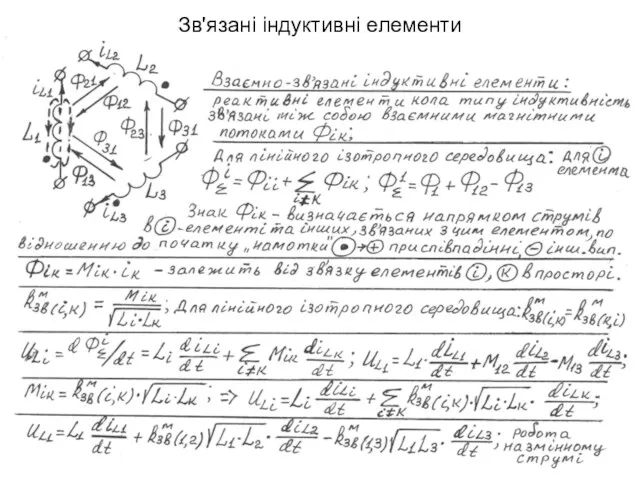 Зв'язані індуктивні елементи
iL2
L2
iL1
Ф21
Ф12
L1
Ф23
Ф31
Ф31
Ф13
L3
iL3
Взаємно-зв'язані індуктивні елементи:
реактивні елементи кола типу індуктивність
зв'язані між собою взаємними магнітними
потоками Фік;
Для лінійного ізотропного середовища: для (i) елемента
Ф^i_Σ = Фii + Σ_{i≠к} Фік ; Ф^i_Σ = Ф1 + Ф12 − Ф13
Знак Фік – визначається напрямком струмів
в (i)-елементі та інших, зв'язаних з цим елементом, по
відношенню до початку „намотки" (•)→(+) при співпадінні, (−) інш. вип.
Фік = Мік·iк – залежить від зв'язку елементів (i), (к) в просторі.
k^м_зв(i,к) = Мік/√(Li·Lк) ; Для лінійного ізотропного середовища: k^м_зв(i,к) = k^м_зв(к,i)
uLi = dФ^i_Σ/dt = Li diLi/dt + Σ_{i≠к} Мік diLк/dt ; uL1 = L1·diL1/dt + М12 diL2/dt − М13 diL3/dt ;
Мік = k^м_зв(i,к)·√(Li·Lк) ; => uLi = Li diLi/dt + Σ_{i≠к} k^м_зв(i,к)·√(Li·Lк) · diLк/dt ;
uL1 = L1 diL1/dt + k^м_зв(1,2)√(L1·L2) · diL2/dt − k^м_зв(1,3)√(L1L3) · diL3/dt ; робота на змінному струмі